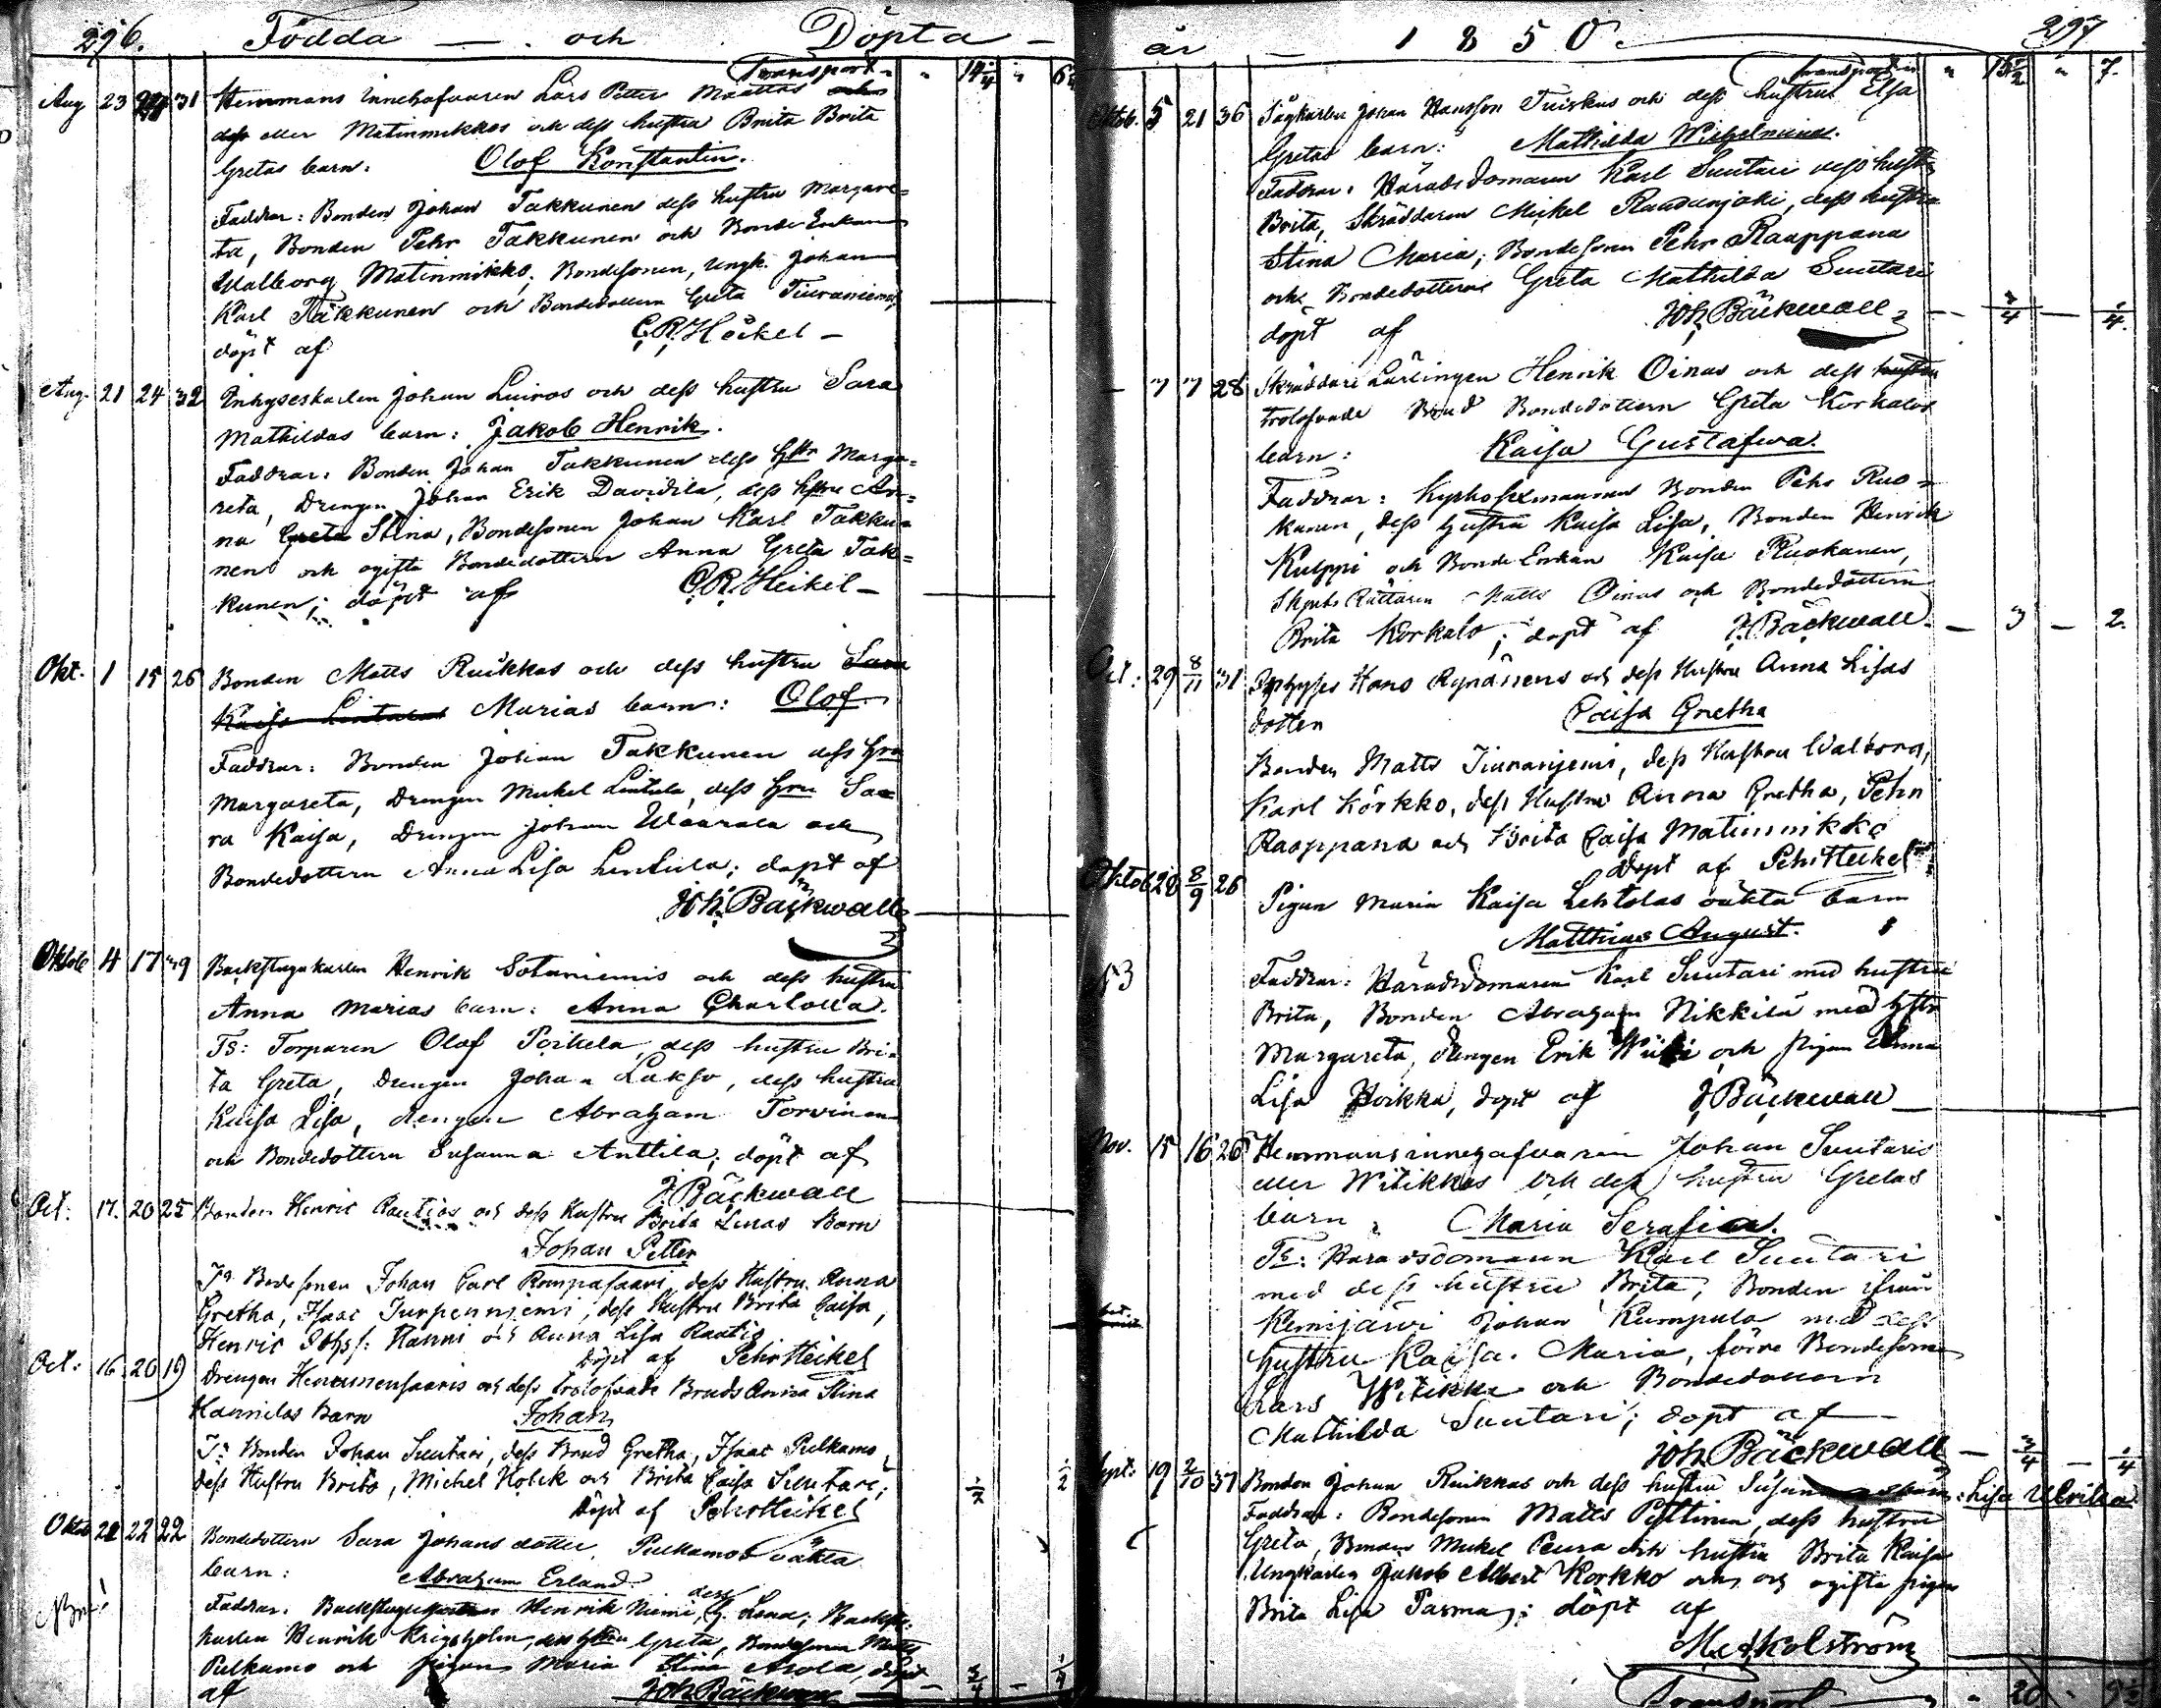 296. Födda — och Döpta —
Transport
Aug 23 31 Hemmans innehafvaren Lars Petter Määttas
eller Matinmikkos och dess hustru Brita Brita
Gretas barn: Olof Konstantin.
Faddrar: Bonden Johan Takkunen dess hustru Margare=
ta, Bonden Pehr Takkunen och Bonde Enkan
Walborg Matinmikko, Bondesonen, Ungk. Johan
Karl Takkunen och Bondedottern Greta Tiuraniemi,
döpt af C.R. Heikel —
Aug. 21 24 32 Inhyseskarlen Johan Luiros och dess hustru Sara
Mathildas barn: Jakob Henrik.
Faddrar: Bonden Johan Takkunen dess Hstr Marga=
reta, Drengen Johan Erik Davidila, dess hstru An=
na Greta Stina, Bondesonen Johan Karl Takku=
nen och ogifta Bondedottern Anna Greta Tak=
kunen; döpt af C.R. Heikel —
Okt. 1 15 26 Bonden Matts Ruikkas och dess hustru
Kaisa Marias barn: Olof
Faddrar: Bonden Johan Takkunen dess Hru
Margareta, Drengen Mickel Lintula, dess Hru Sa=
ra Kaisa, Drengen Johan Waarala och
Bondedottern Anna Lisa Lintula; döpt af
Joh. Bäckwall
Oktob 4 17 39 Backstugukarlen Henrik Sotaniemis och dess hustru
Anna Marias barn: Anna Charlotta.
Fs: Torparen Olof Poikela, dess hustru Bri=
ta Greta, Drengen Johan Lakso, dess hustru
Kaisa Lisa, drengen Abraham Torvinen
och Bondedottern Susanna Anttila; döpt af
J. Bäckwall
Oct: 17. 20 25 Bonden Henric Rautios och dess Hustru Brita Linas Barn
Johan Petter
Fs. Bondesonen Johan Carl Rompasaari, dess Hustru Anna
Gretha, Isaac Jurpenniemi, dess Hustru Brita Caisa,
Henric Hanni och Anna Lisa Rautio
döpt af Pehr Heikel
Oct: 16. 20 19 Drengen och dess trolofvade Bruds Anna Stina
Hannilas Barn Johan
Fs. Bonden Johan Suutari, dess Brud Gretha, Isaac Pulkamo,
dess Hustru Brita, Michel Kolek och Brita Caisa Suutari;
Döpt af Pehr Heikel
1/2 1/2
Oktob 22 22 Bondedottern Sara Johans dotter, Pulkamos oäkta
barn: Abraham Erland.
Faddrar. Henrik Niemi, dess H. Lena; Backstu=
karlen Henrik Krigsholm, dess Hstru Greta, Bondesonen Matts
Pulkamo och pigan Maria Stina Arola, döpt
af Joh Bäckwall 3/4
år — 1850. 297
Transport 7.
Oktob. 5 21 36 Sågkarlen Johan Hansson Tuiskus och dess hustru Elsa
Gretas barn: Mathilda Wilhelmina.
Faddrar. Häradsdomaren Karl Suutari dess hustru
Brita, Skräddaren Mickel Raudanjoki, dess hustru
Stina Maria, Bondesonen Pehr Raappana
och Bondedottern Greta Mathilda Suutari
döpt af Joh. Bäckwall 3/4 1/4.
— 7 7 28 Skräddare Lärlingen Henrik Oinas och dess hustru
trolofvade Brud Bondedottern Greta Korkalos
barn: Kaisa Gustafva.
Faddrar: Kyrko Sexmannen Bonden Pehr Ruo=
kanen, dess hustru Kaisa Lisa, Bonden Henrik
Kulppi och Bonde Enkan Kaisa Ruokanen,
Skjuts Rättaren Matts Oinas och Bondedottern
Brita Korkalo; döpt af J. Bäckwall — 3 — 2.
Oct: 29 8/11 31 Inhyses Hans Rynänens och dess Hustru Anna Lisas
dotter Caisa Gretha
Bonden Matts Tiuranjemi, dess Hustru Walborg,
Karl Körkkö, dess Hustru Anna Gretha, Pehr
Raappana och Brita Caisa Matinmikko
döpt af Pehr Heikel
Oktob 28 8/9 26 Pigan Maria Kaisa Lehtolas oäkta barn
Matthias August.
Faddrar: Häradsdomaren Karl Suutari med hustru
Brita, Bonden Abraham Nikkilä med hstr
Margareta, drengen Erik och pigan Anna
Lisa Hoikka, döpt af J. Bäckwall
Nov. 15 16 26 Hemmansinnehafvaren Johan Suutaris
eller Witikkas och dess hustru Gretas
barn: Maria Serafia.
Fs: Häradsdomaren Karl Suutari
med dess hustru Brita, Bonden ifrån
Kemijärvi Johan Kumpula med dess
hustru Kaisa Maria, förre Bondesonen
Lars Witikka och Bondedottern
Mathilda Suutari; döpt af
Joh Bäckwall — 3/4 — 1/4
Sept: 19 2/10 37 Bonden Johan Ruikkas och dess hustru Susan barn: Lisa Ulrika
Faddrar: Bondesonen Matts Pottinen, dess hustru
Greta, Bonden Mickel Peura och hustru Brita Kaisa
Ungkarlen Jakob Albert Korkko och ogifta pigan
Brita Lisa Tarma; döpt af
Transport 20